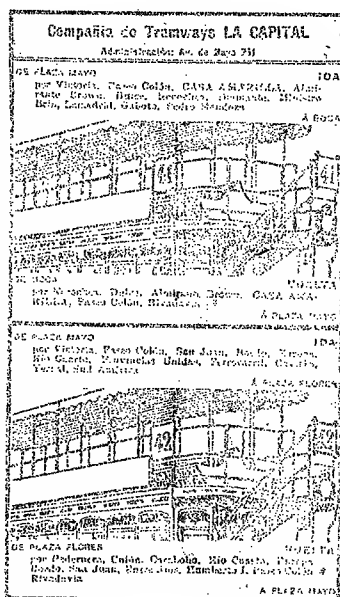 Compañía de Tramways LA CAPITAL
Administración: Av. de Mayo 731
DE PLAZA MAYO IDA
por Victoria, Paseo Colón, CASA AMARILLA, Almi-
rante Brown, Ministro
Brin, Lamadrid, Gaboto, Pedro Mendoza
Á BOCA
41
41
DE BOCA VUELTA
por Necochea, Almirante Brown, CASA AMA-
RILLA, Paseo Colón, Rivadavia
Á PLAZA MAYO
DE PLAZA MAYO IDA
por Victoria, Paseo Colón, San Juan,
Río Cuarto, Provincias Unidas, Ferrocarril,
Sud América
Á PLAZA FLORES
42
42
DE PLAZA FLORES VUELTA
por Pedernera, Unión, Carabobo, Río Cuarto,
San Juan, Humberto I, Paseo Colón y
Rivadavia
Á PLAZA MAYO